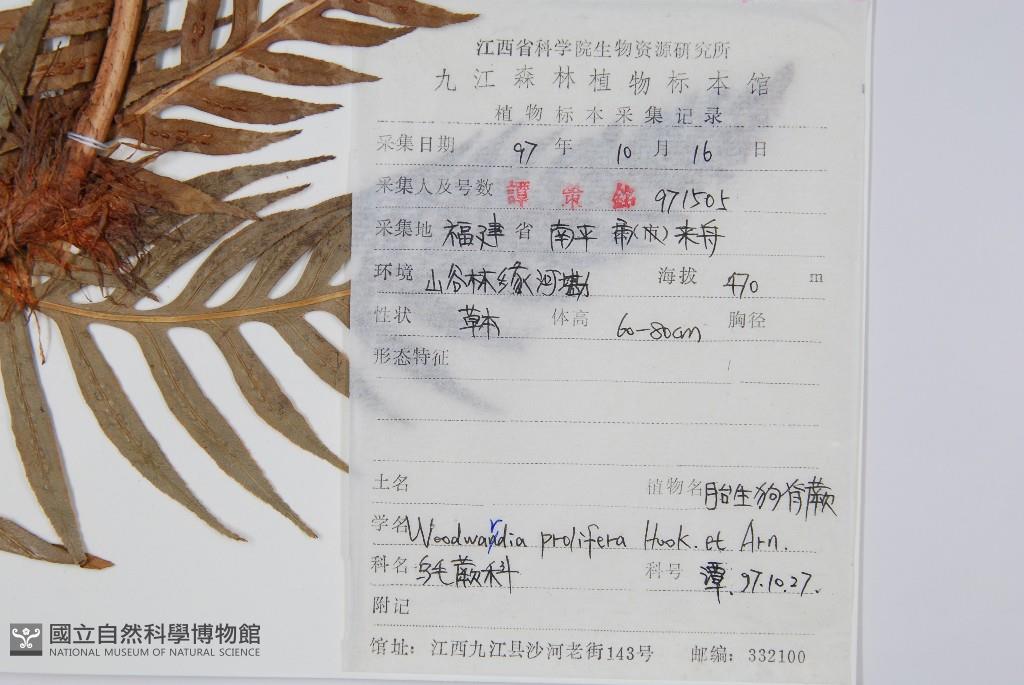 江西省科学院生物资源研究所
九江森林植物标本馆
植物标本采集记录
采集日期 97 年 10 月 16 日
采集人及号数 譚 策 銘 971505
采集地 福建 省 南平 市(县) 来舟
环境 山谷林缘河 海拔 470 m
性状 草本 体高 60-80cm 胸径
形态特征
土名 植物名 胎生狗脊蕨
学名 Woodwardia prolifera Hook. et Arn.
科名 乌毛蕨科 科号 潭. 97.10.27.
附记
馆址: 江西九江县沙河老街143号 邮编: 332100
國立自然科學博物館
NATIONAL MUSEUM OF NATURAL SCIENCE